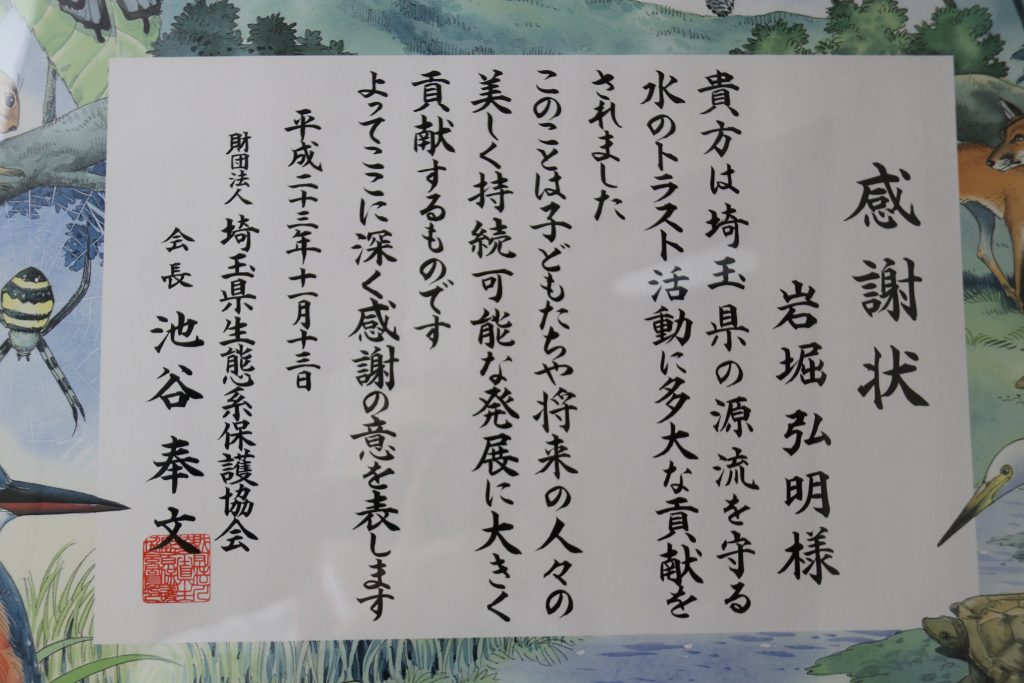 感謝状
岩堀弘明様
貴方は埼玉県の源流を守る
水のトラスト活動に多大な貢献を
されました
このことは子どもたちや将来の人々の
美しく持続可能な発展に大きく
貢献するものです
よってここに深く感謝の意を表します
平成二十三年十一月十三日
財団法人 埼玉県生態系保護協会
会長 池谷奉文